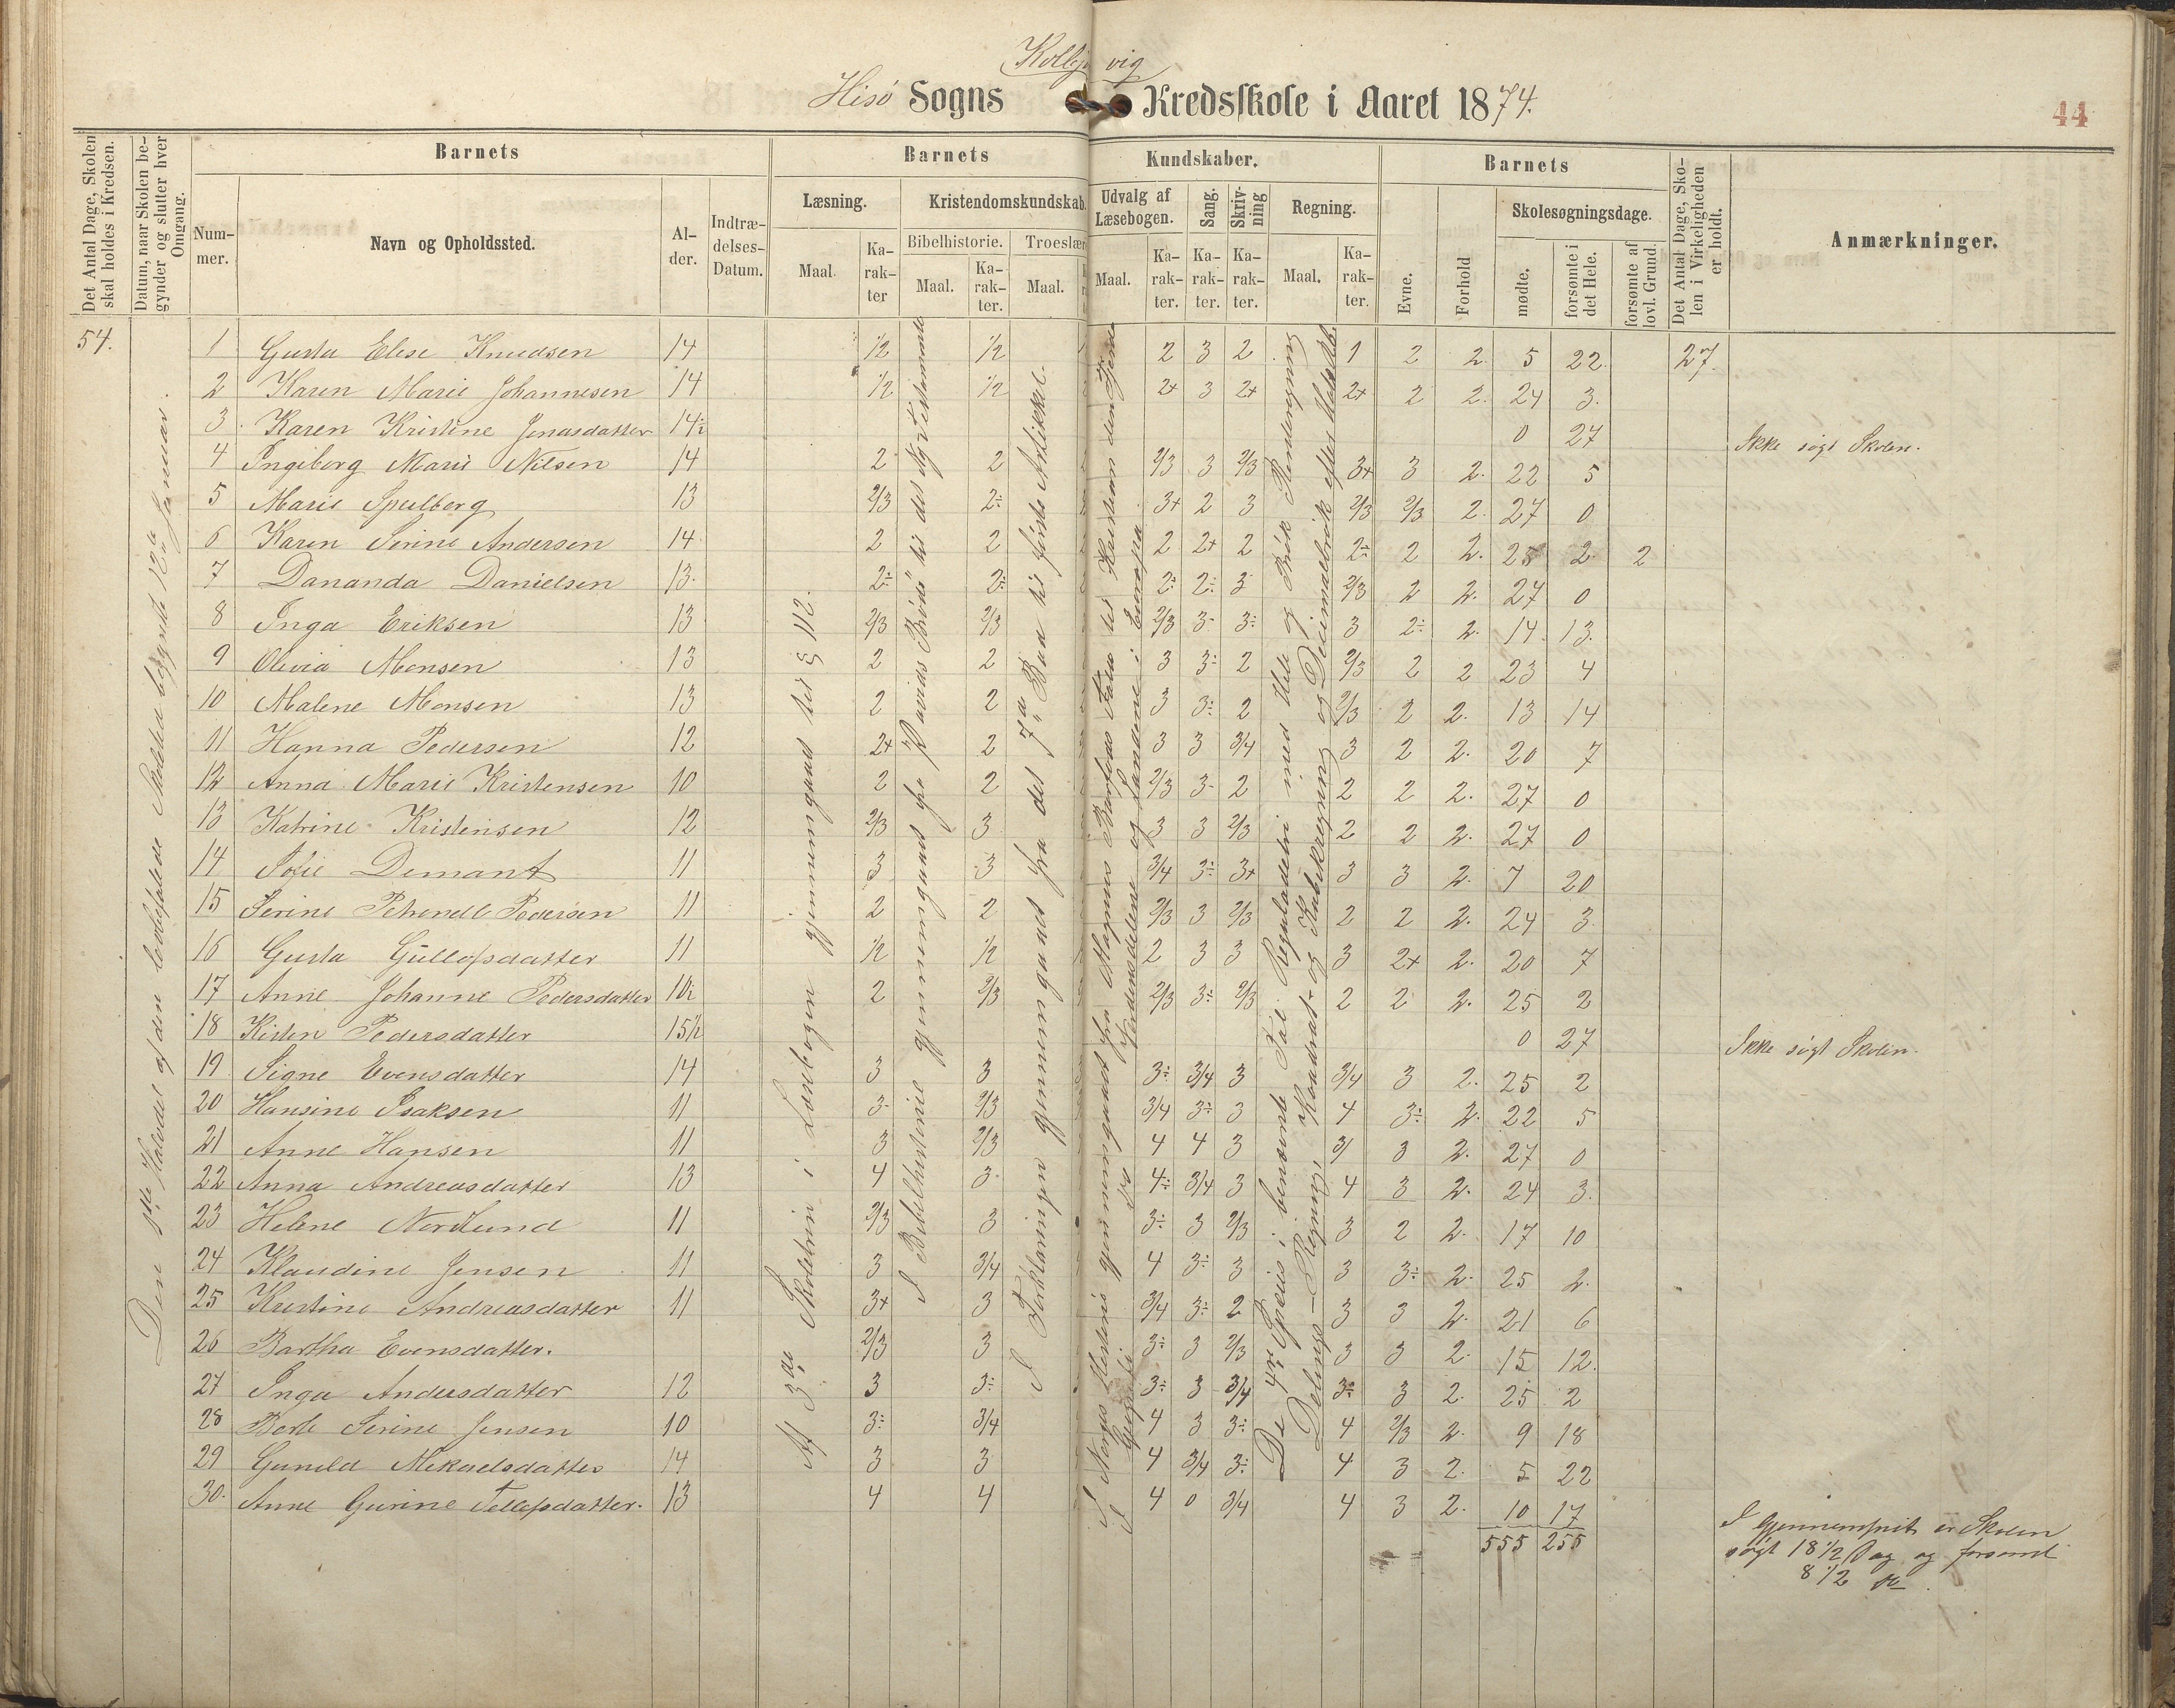 Kolbjørnsvig
Hisø Sogns Kredsskole i Aaret 1874.
44
Det Antal Dage, Skolen skal holdes i Kredsen.
Datum, naar Skolen begynder og slutter hver Omgang.
Barnets
Nummer.
Navn og Opholdssted.
Alder.
Indtrædelses-Datum.
Barnets Kundskaber.
Læsning.
Maal.
Karakter
Kristendomskundskab.
Bibelhistorie.
Maal.
Karakter.
Troeslære
Maal.
Udvalg af Læsebogen.
Maal.
Karakter.
Sang.
Karakter.
Skrivning
Karakter.
Regning.
Maal.
Karakter.
Barnets
Evne.
Forhold
Skolesøgningsdage.
mødte.
forsømte i det Hele.
forsømte af lovl. Grund.
Det Antal Dage, Skolen i Virkeligheden er holdt.
Anmærkninger.
54.
1 Gusta Elise Knudsen 14 1/2 1/2 2 3 2 1 2 2. 5 22. 27.
2 Karen Marie Johannesen 14 1/2 1/2 2+ 3 2+ 2+ 2 2. 24 3.
3 Karen Kristine Jonasdatter 14½ 0 27 Ikke søgt Skolen.
4 Ingeborg Marie Nilsen 14 2 2 2/3 3 2/3 3+ 3 2. 22 5
5 Marie Spilberg 13 2/3 2÷ 3+ 2 3 2/3 2/3 2. 27 0
6 Karen Serine Andersen 14 2 2 2 2+ 2 2÷ 2 2. 25 2 2
7 Dananda Danielsen 13. 2÷ 2÷ 2÷ 2÷ 3 2/3 2 2. 27 0
8 Inga Eriksen 13 2/3 2/3 2/3 3- 3÷ 3 2÷ 2. 14. 13.
9 Olivia Monsen 13 2 2 3 3÷ 2 2/3 2 2 23 4
10 Malene Monsen 13 2 2 3 3÷ 2 2/3 2 2. 13 14
11 Hanna Pedersen 12 2+ 2 3 3 3/4 3 2 2. 20 7
12 Anna Marie Kristensen 10 2 2 2/3 3- 2 2 2 2. 27 0
13 Katrine Kristensen 12 2/3 3 3 3 2/3 2 2 2. 27 0
14 Sofie Demant 11 3 3 3/4 3÷ 3+ 3 3 2. 7 20
15 Serine Petrende Pedersen 11 2 2 2/3 3 2/3 2 2 2. 24 3
16 Gusta Gullofsdatter 11 1/2 1/2 2 3 3 3 2+ 2. 20 7
17 Anne Johanne Pedersdatter 10½ 2 2/3 2/3 3÷ 2/3 2 2 2. 25 2
18 Kisten Pedersdatter 15½ 0 27 Ikke søgt Skolen.
19 Signe Evensdatter 14 3 3 3÷ 3/4 3 3/4 3 2. 25 2
20 Hansine Isaksen 11 3- 2/3 3/4 3÷ 3 4 3÷ 2. 22 5
21 Anne Hansen 11 3 2/3 4 4 3 3/ 3 2. 27 0
22 Anna Andreasdatter 13 4 3- 4÷ 3/4 3 4 3 2. 24 3.
23 Helene Nordlund 11 2/3 3 3÷ 3 2/3 3 2 2. 17 10
24 Klaudine Jensen 11 3 3/4 4 3÷ 3 3 3÷ 2. 25 2.
25 Kristine Andreasdatter 11 3+ 3 3/4 3÷ 2 3 3 2. 21 6
26 Bartha Evensdatter. 2/3 3 3÷ 3 2/3 3 3 2. 15 12.
27 Inga Andersdatter 12 3 3÷ 3÷ 3 3/4 3÷ 3 2. 25 2
28 Berte Serine Jensen 10 3÷ 3/4 4 3 3÷ 4 2/3 2. 9 18
29 Gunild Mikaelsdatter 14 3 3 4 3/4 3÷ 4 3 2. 5 22
30. Anne Gurine Tellefsdatter. 13 4 4 4 0 3/4 4 3 2. 10 17
555 255
I Gjennemsnit er Skolen
søgt 18 1/2 Dag og forsømt
8 1/2
Den 1ste Halvdel af den lovbefalede Skoletid begyndte 12te Januar.
Af 3die Skoletrin i Læsebogen gjennemgaaet til § 112.
I Bibelhistorie gjennemgaaet fra Davids Brøde til det Ny Testamente
I Forklaringen gjennemgaaet fra det 7de Bud til første Artikkel.
I Norges Historie gjennemgaaet fra Magnus Barfods Fald til Kristian den
I Geografi Jordinddelelse og Landene i Europa
De 4r Species i benævnte Tal. Reguladetri med Hele og Brøk Renteregning
Delings-Regning, Kvadrat- og Kubikregning og Decimalbrøk efter